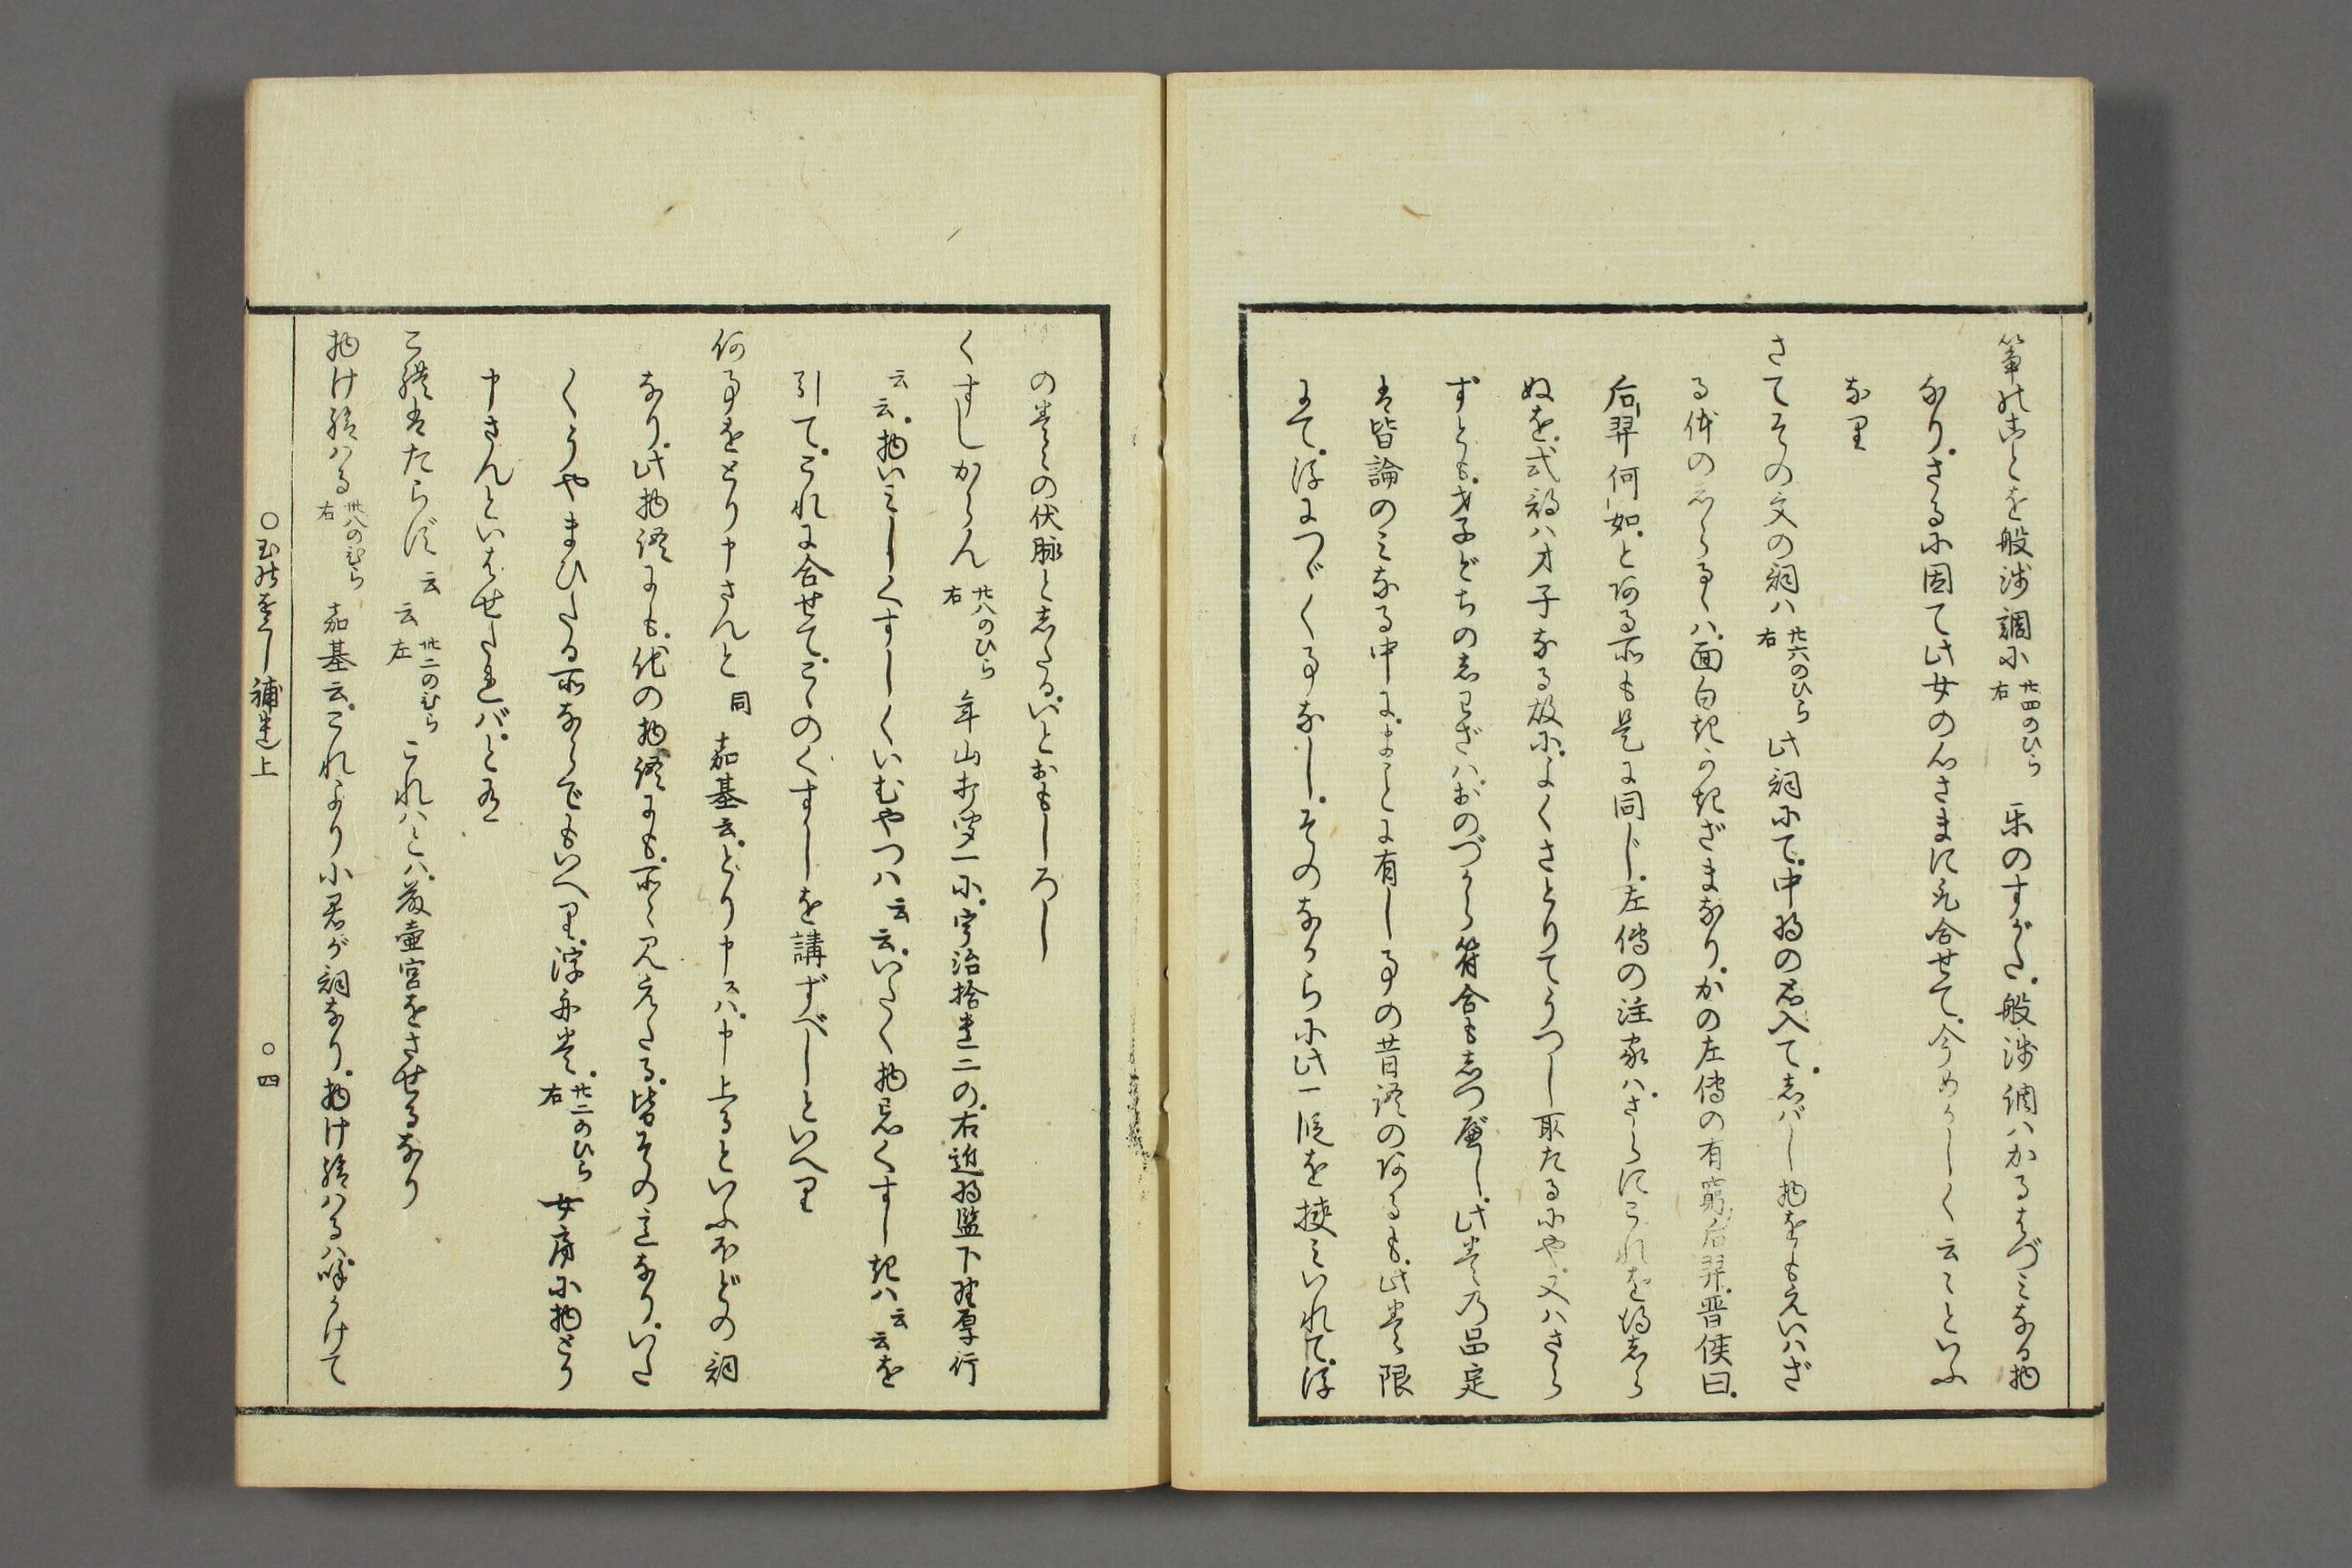 箏のことを般渉調に廿四のひら右 楽のすがた。般渉調ハかるはづミなる物
なり。さるに因て此女の心さまに見合せて。今めかしく云々といふ
なり
さてその文の詞ハ廿六のひら右 此詞にて。中将の君入て。しばし物をもえいハざ
る体のしらるゝハ。面白きかきざまなり。かの左傳の有窮后羿。晋侯曰。
后羿何如。とある所も是に同じ。左傳の注家ハ。さらにこれを得しら
ぬを。式部ハ才子なる故に。よくさとりてうつし取たるにや。又ハさら
ずとも。才子どちのしわざハ。おのづから符合もしつべし。此巻の品定
は皆論のミなる中に。まことに有し事の昔語のあるも。此巻に限
りて。浮につゞく事なし。そのなからに此一段を挟ミいれて。浮
の巻々の伏脉としたる。いとおもしろし
くすしからん廿八のひら右 年山打聞一に。宇治拾遺二の。右近将監下野厚行
云云。物いミしくすしくいむやつハ云云。いたく物忌くすしきハ云云を
引て。これに合せて。こゝのくすしを講ずべしといへり
何事をとり申さんと同 嘉基云。とり申スハ。申上るといふほどの詞
なり。此物語にも。他の物語にも。所々見えたる。皆その意なり。いた
くうやまひたる所ならでもいへり。浮舟巻。廿二のひら右 女房に物とり
申さんといはせたれバ。と有
こ聟はたらぼ云云卅二のひら左 これハとハ。藤壺宮をさせるなり
物け給ハる卅八のひら右 嘉基云。これより小君が詞なり。物け給ハるハ。呼かけて
○玉のをぐし補遺上 ○四